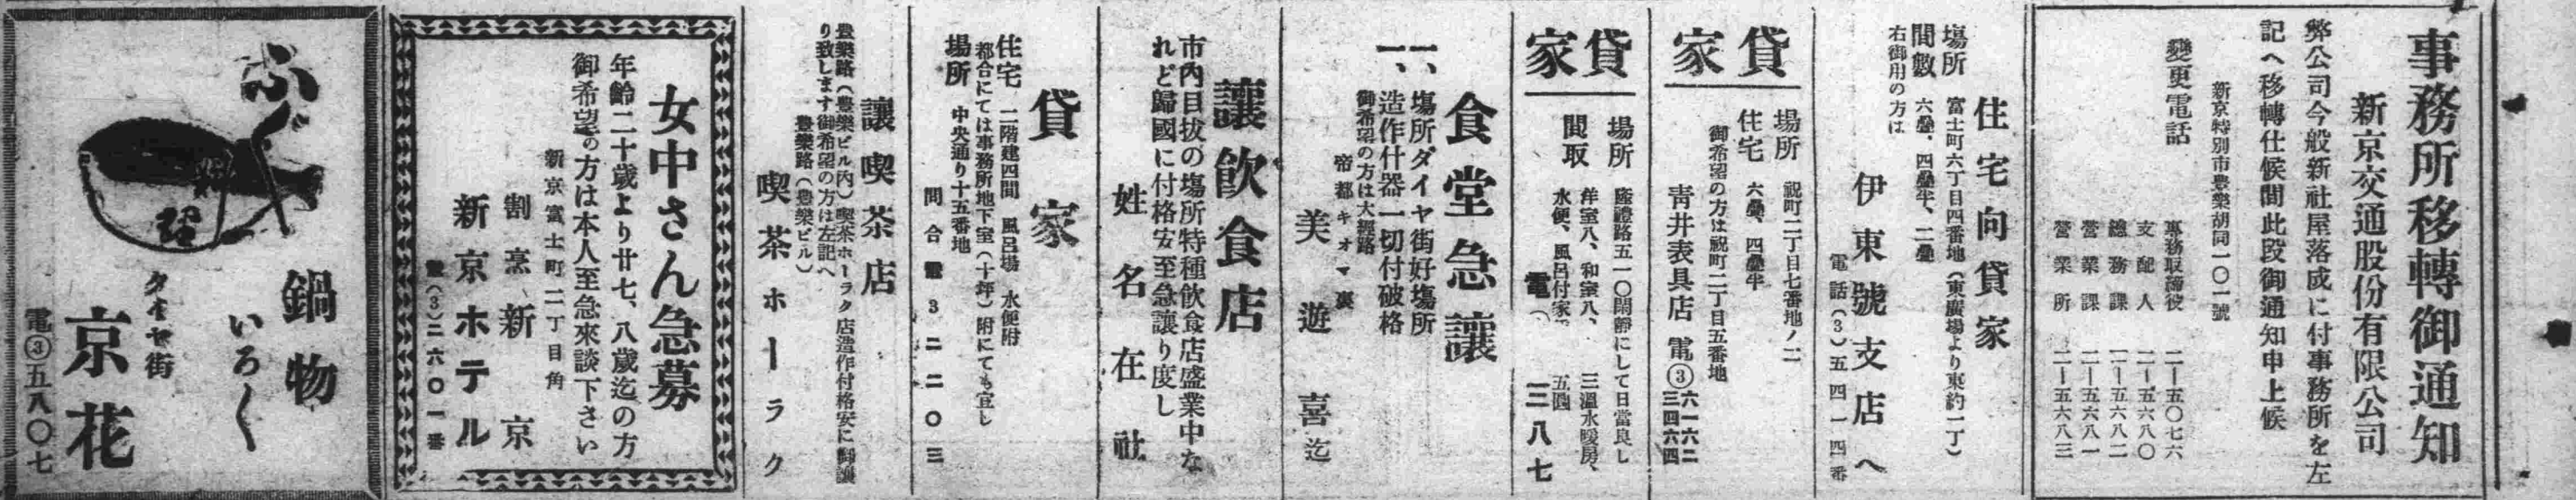 事務所移轉御通知
新京交通股份有限公司
弊公司今般新社屋落成に付事務所を左
記へ移轉仕候間此段御通知申上候
新京特別市豊樂胡同一〇一號
變更電話
専務取締役 二―五〇七六
支配人 二―五六八〇
總務課 二―五六八二
營業課 二―五六八一
營業所 二―五六八三
住宅向貸家
場所 富士町六丁目四番地（東廣場より東約一丁）
間數 六疊、四疊半、二疊
右御用の方は
伊東號支店へ
電話（3）五四一四番
貸家
場所 祝町二丁目七番地ノ二
住宅 六疊、四疊半
御希望の方は祝町二丁目五番地
靑井表具店 電③六一六二
三四六四
貸家
場所
間取 洋室八、和室八、
水便、風呂付家
電
食堂急讓
一、場所ダイヤ街好場所
一、造作什器一切付破格
御希望の方は大經路
帝都キネマ裏
美遊喜迄
讓飮食店
市內目拔の場所特種飮食店盛業中な
れど歸國に付格安至急讓り度し
姓名在社
貸家
住宅 二階建四間 風呂場 水便附
都合にては事務所地下室（十坪）附にても宜し
場所 中央通り十五番地
問合電3二二〇三
讓喫茶店
豊樂路（豊樂ビル內）喫茶ホーラク店造作付格安に御讓
り致します御希望の方は左記へ
豊樂路（豊樂ビル）
喫茶ホーラク
女中さん急募
年齡二十歲より廿七、八歲迄の方
御希望の方は本人至急來談下さい
新京富士町二丁目角
割烹 新京
新京ホテル
電（3）二六〇一番
ふぐ
鍋物
いろ〱
ダイヤ街
京花
電③五八〇七